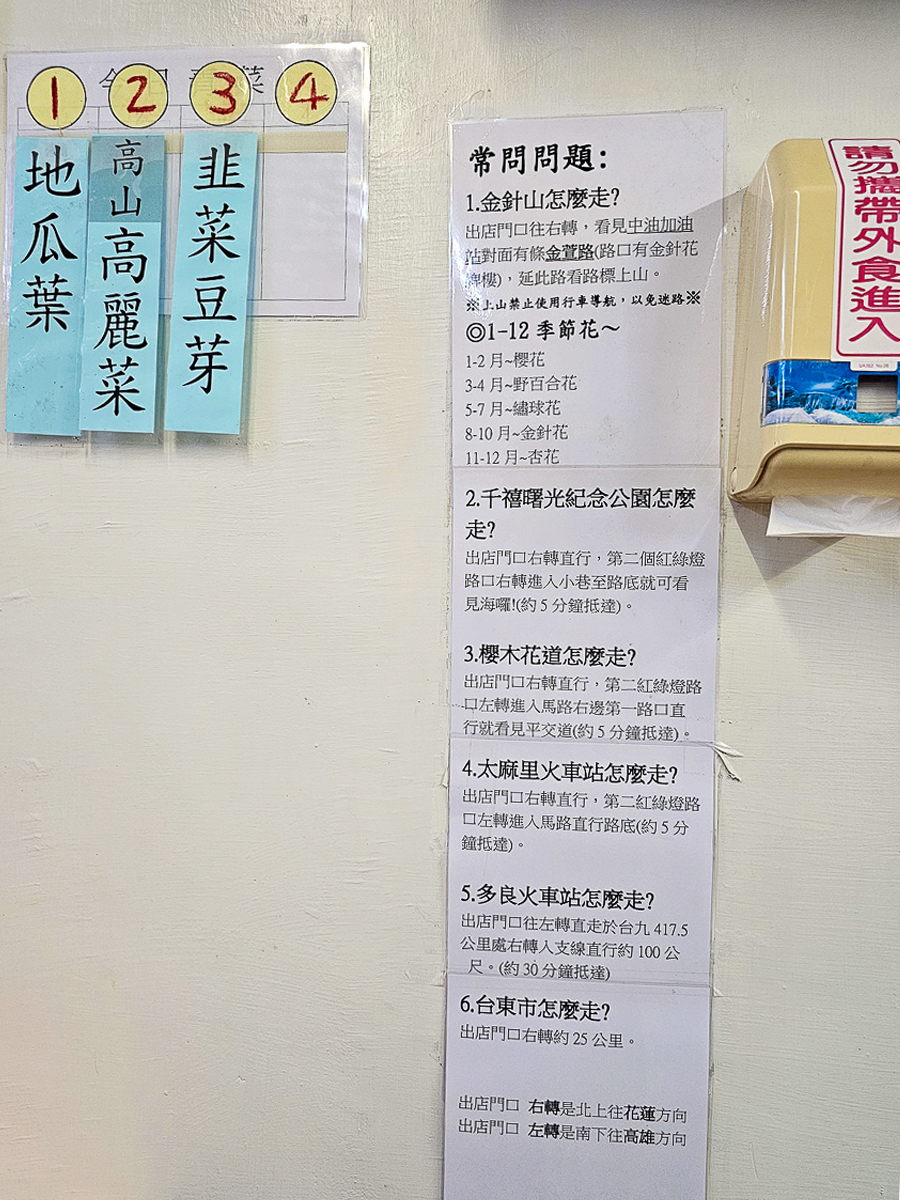 1 2 3 4
菜
地瓜葉
高山高麗菜
韭菜豆芽
常問問題:
1.金針山怎麼走?
出店門口往右轉，看見中油加油
站對面有條金萱路(路口有金針花
牌樓)，延此路看路標上山。
※上山禁止使用行車導航，以免迷路※
◎1-12 季節花～
1-2 月~櫻花
3-4 月~野百合花
5-7 月~繡球花
8-10 月~金針花
11-12 月~杏花
2.千禧曙光紀念公園怎麼
走?
出店門口右轉直行，第二個紅綠燈
路口右轉進入小巷至路底就可看
見海囉!(約 5 分鐘抵達)。
3.櫻木花道怎麼走?
出店門口右轉直行，第二紅綠燈路
口左轉進入馬路右邊第一路口直
行就看見平交道(約 5 分鐘抵達)。
4.太麻里火車站怎麼走?
出店門口右轉直行，第二紅綠燈路
口左轉進入馬路直行路底(約 5 分
鐘抵達)。
5.多良火車站怎麼走?
出店門口往左轉直走於台九 417.5
公里處右轉入支線直行約 100 公
尺。(約 30 分鐘抵達)
6.台東市怎麼走?
出店門口右轉約 25 公里。
出店門口 右轉是北上往花蓮方向
出店門口 左轉是南下往高雄方向
請勿攜帶外食進入